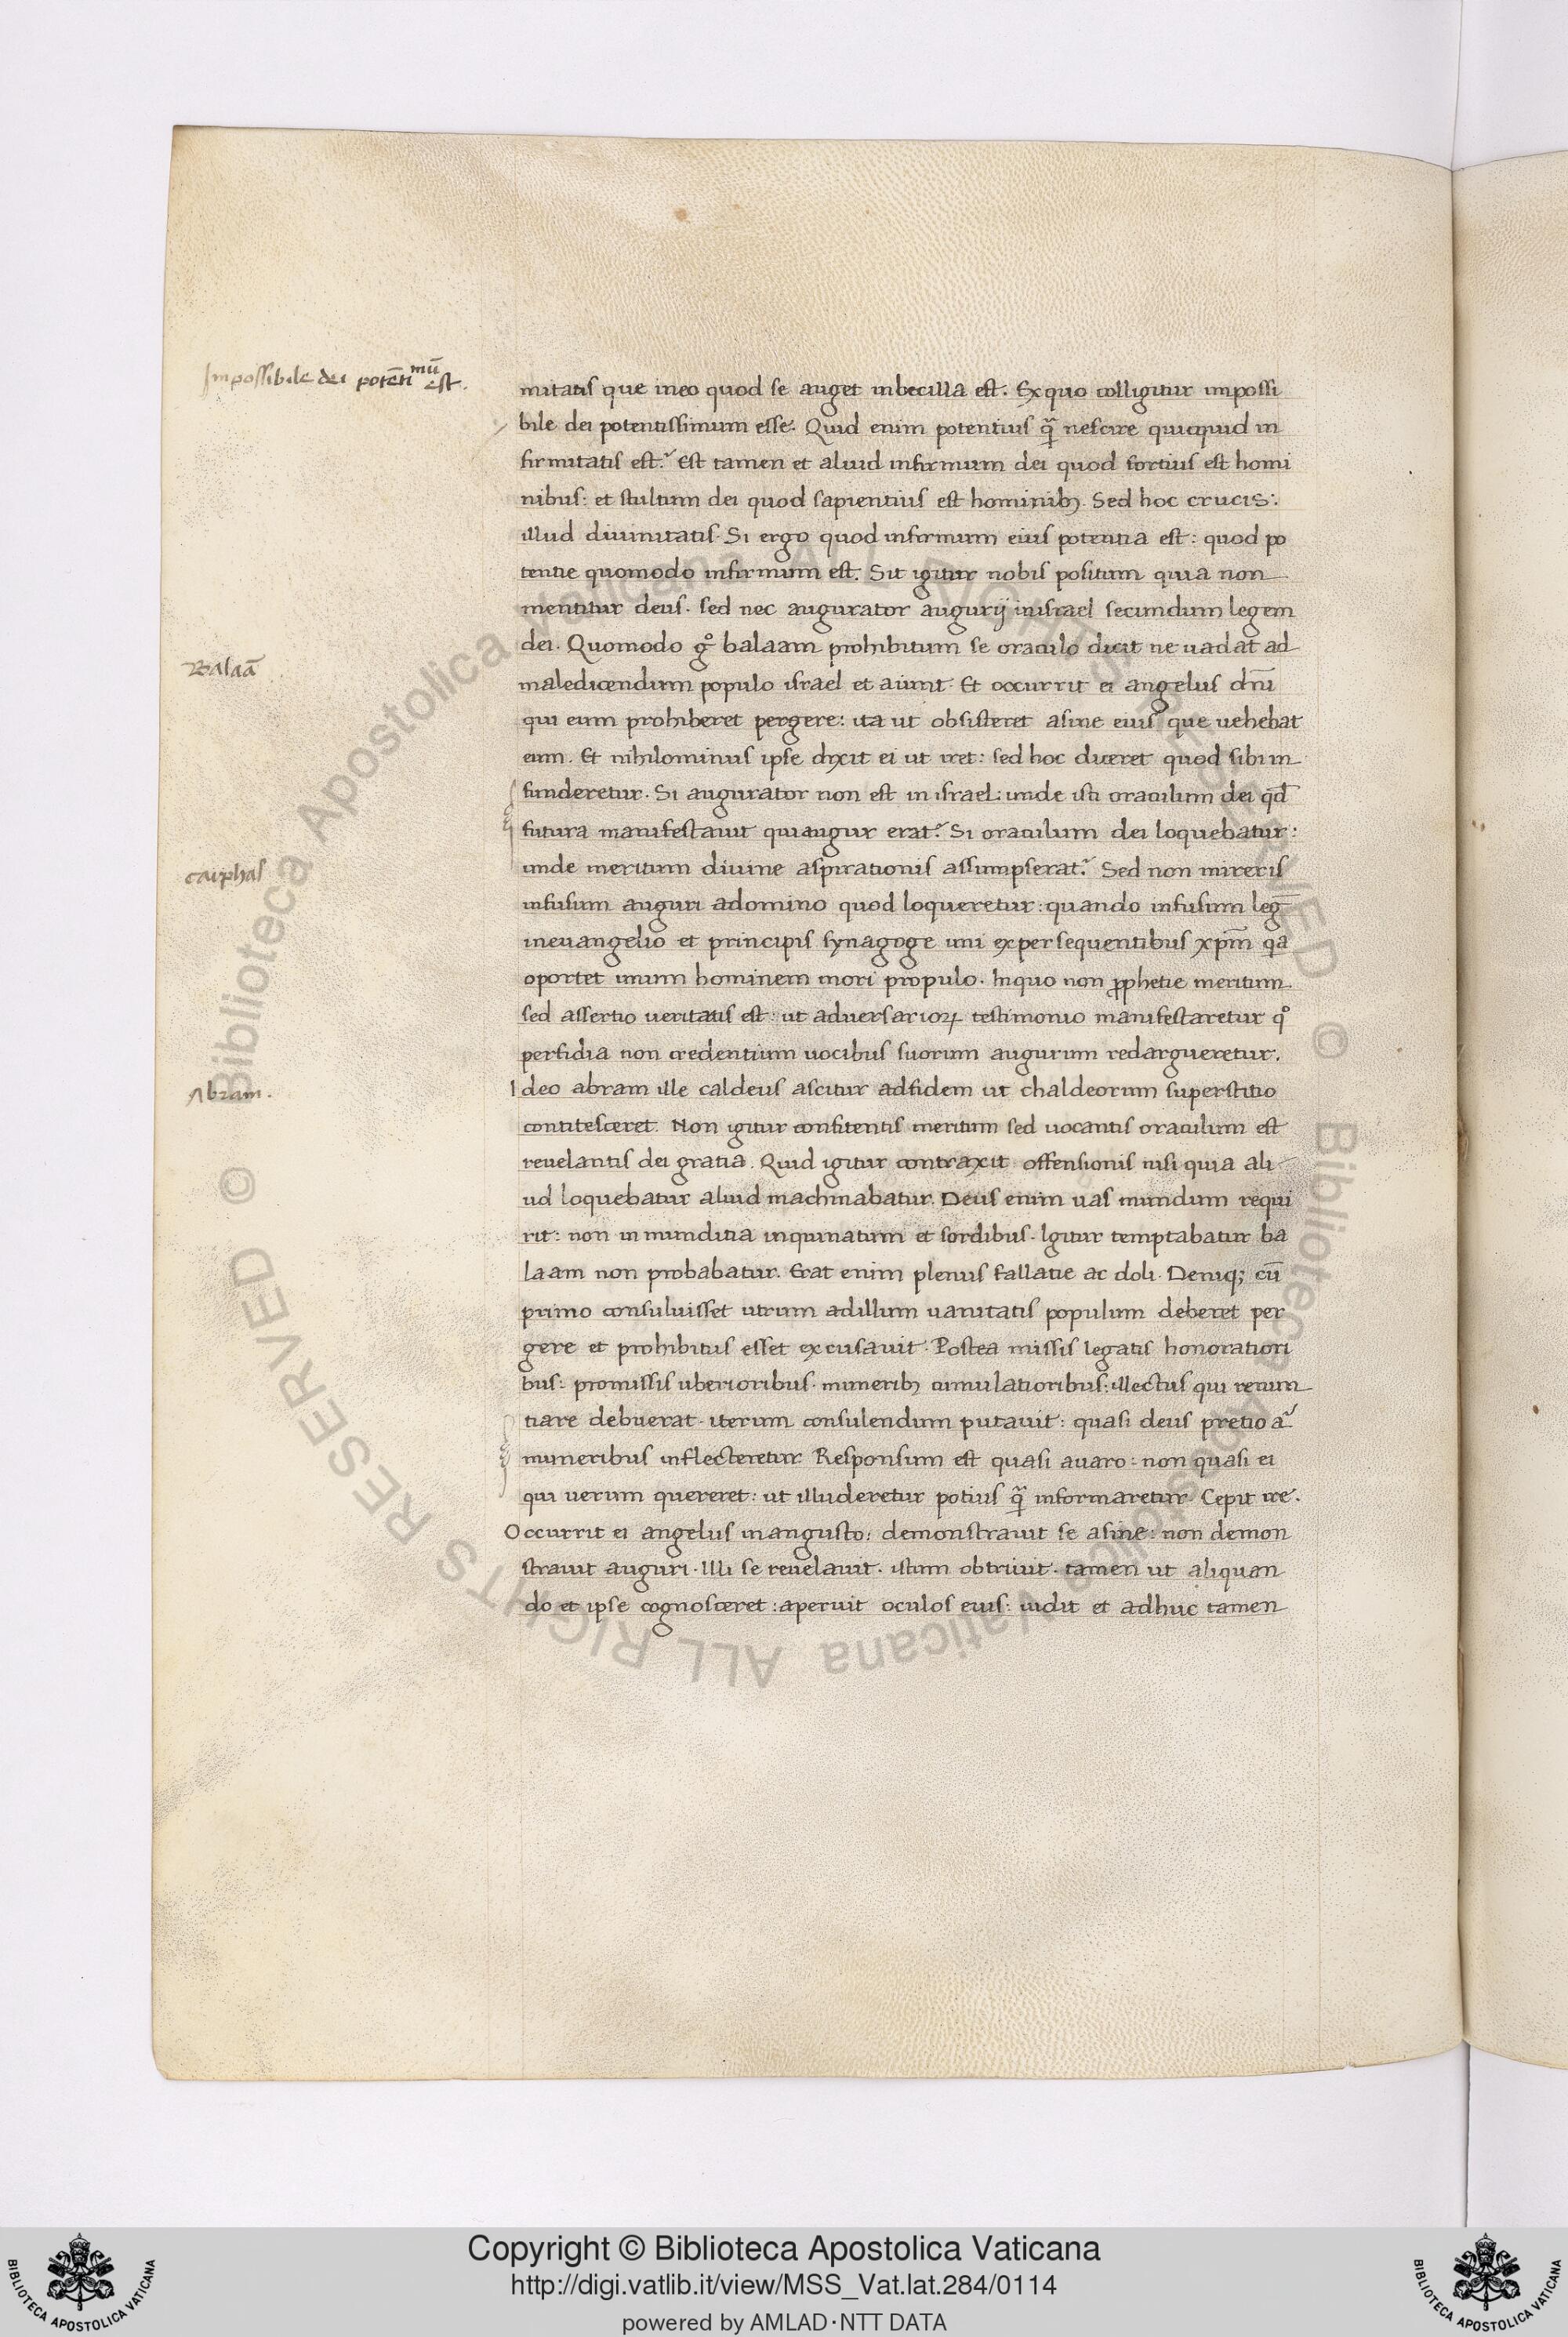 Impossibile dei potētimū est.
mitatis que ineo quod se auget inbecilla est. Ex quo colligitur impossi
bile dei potentissimum esse. Quid enim potentius q̃ nescire quicquid in
firmitatis est? Est tamen et aliud infirmum dei quod fortius est homi
nibus: et stultum dei quod sapientius est hominibꝫ. Sed hoc crucis:
illud diuinitatis. Si ergo quod infirmum eius potentia est: quod po
tentie quomodo infirmum est. Sit igitur nobis positum quia non
mentitur deus. sed nec augurator augurij inisrael secundum legem
dei. Quomodo gͦ balaam prohibitum se oraculo dicit ne uadat ad
Balaā
maledicendum populo israel et aiunt. Et occurrit ei angelus dn̄i
qui eum prohiberet pergere: ita ut obsisteret asine eius que uehebat
eum. Et nihilominus ipse dixit ei ut iret: sed hoc diceret quod sibi in
funderetur. Si augurator non est in israel: unde isti oraculum dei qd̄
futura manifestauit qui augur erat? Si oraculum dei loquebatur:
unde meritum diuine aspirationis assumpserat? Sed non mireris
caiphas
infusum auguri adomino quod loqueretur: quando infusum leḡ
ineuangelio et principis synagoge uni ex persequentibus xp̄m qa
oportet unum hominem mori propulo. Inquo non ꝓphetie meritum
sed assertio ueritatis est: ut aduersarioꝝ testimonio manifestaretur qͦ
perfidia non credentium uocibus suorum augurum redargueretur.
Ideo abram ille caldeus ascitur adfidem ut chaldeorum superstitio
Abram.
contitesceret. Non igitur confitentis meritum sed uocantis oraculum est
reuelantis dei gratia. Quid igitur contraxit offensionis nisi quia ali
ud loquebatur aliud machinabatur. Deus enim uas mundum requi
rit: non inmunditia inquinatum et sordibus. Igitur temptabatur ba
laam non probabatur. Erat enim plenus fallatie ac doli. Deniqꝫ cū
primo consuluisset utrum adillum uanitatis populum deberet per
gere et prohibitus esset excusauit. Postea missis legatis honoratiori
bus: promissis uberioribus. muneribꝫ cumulatioribus: illectus qui renun
tiare debuerat. iterum consulendum putauit: quasi deus pretio a᷑
muneribus inflecteretur Responsum est quasi auaro: non quasi ei
qui uerum quereret: ut illuderetur potius q̃ informaretur. Cepit ire.
Occurrit ei angelus inangusto: demonstrauit se asine: non demon
strauit auguri. Illi se reuelauit. istum obtriuit. tamen ut aliquan
do et ipse cognosceret: aperuit oculos eius: uidit et adhuc tamen
Copyright © Biblioteca Apostolica Vaticana
http://digi.vatlib.it/view/MSS_Vat.lat.284/0114
powered by AMLAD·NTT DATA